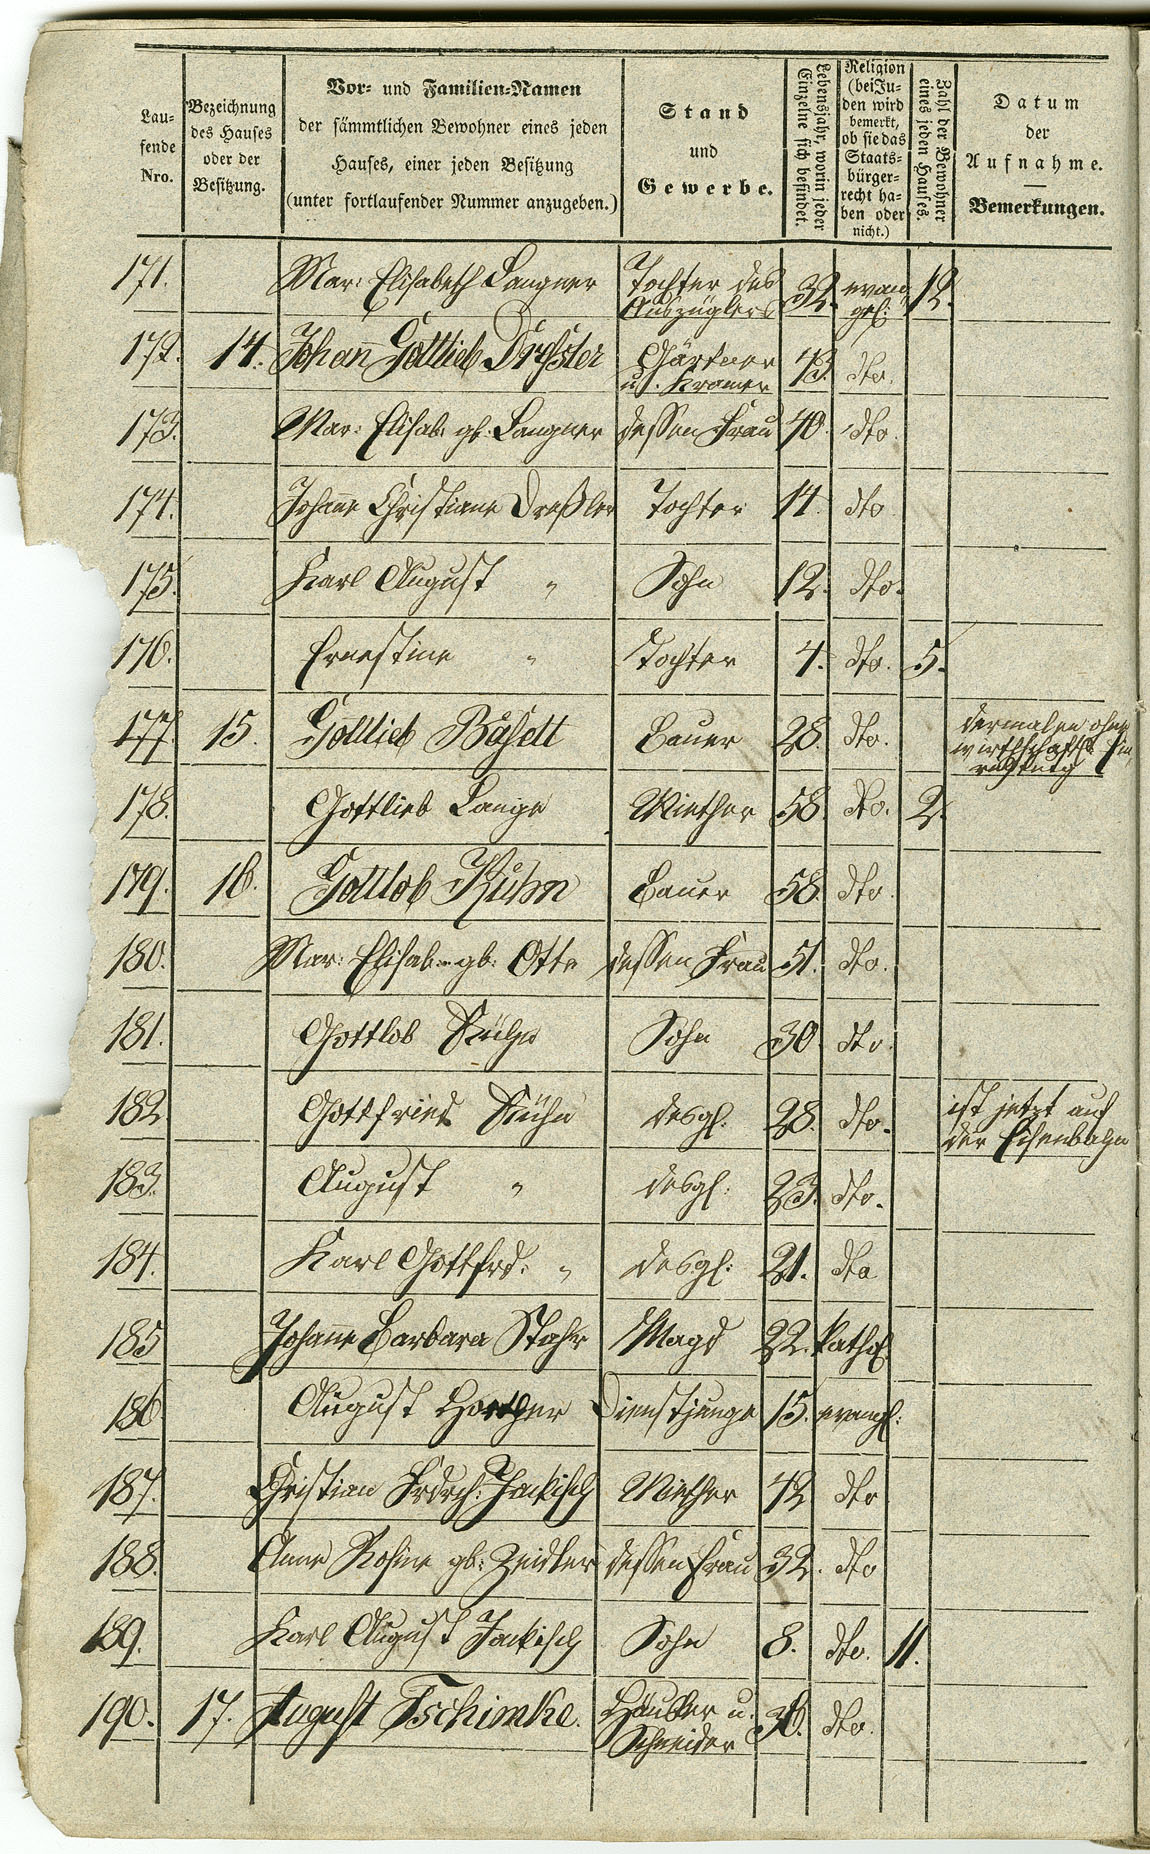 Lau-
fende
Nro.
Bezeichnung
des Hauses
oder der
Besitzung.
Vor- und Familien-Namen
der sämmtlichen Bewohner eines jeden
Hauses, einer jeden Besitzung
(unter fortlaufender Nummer anzugeben.)
Stand
und
Gewerbe.
Lebensjahr, worin jeder
Einzelne sich befindet.
Religion
(bei Ju-
den wird
bemerkt,
ob sie das
Staats-
bürger-
recht ha-
ben oder
nicht.)
Zahl der Bewohner
eines jeden Hauses.
Datum
der
Aufnahme.
Bemerkungen.
171. Mar: Elisabeth Langner Tochter des Auszüglers 32. evan gel: 12.
172. 14. Johann Gottlieb Gärtner u. Kramer 43. dto.
173. Mar: Elisab: gb. Langner dessen Frau 40. dto.
174. Johanne Christiane Dreßler Tochter 14. dto.
175. Karl August " Sohn 12. dto.
176. Ernestine " Tochter 4. dto. 5.
177. 15. Gottlieb Bäseltt Bauer 28. dto. dermalen ohne
wirthschaftl. Ein,
richtung
178. Gottlieb Lange Miether 58. dto. 2.
179. 16. Gottlob Kuhn Bauer 58. dto.
180. Mar: Elisab: gb: Otto dessen Frau 51. dto.
181. Gottlob Kühn Sohn 30. dto.
182. Gottfried Kühn desgl. 28. dto. ist jetzt auf
der Eisenbahn
183. August " desgl: 23. dto.
184. Karl Gottfrd: " desgl: 21. dto
185 Johanne Barbara Stahr Magd 22. kathol.
186 August Dienstjunge 15. evangl:
187. Christian Frdrch: Jackisch Miether 42 dto
188. Anne Rosine gb: Zeidler dessen Frau 32. dto
189. Karl August Jackisch Sohn 8. dto. 11.
190. 17. August Tschimke. Häusler u.
Schneider 36. dto.